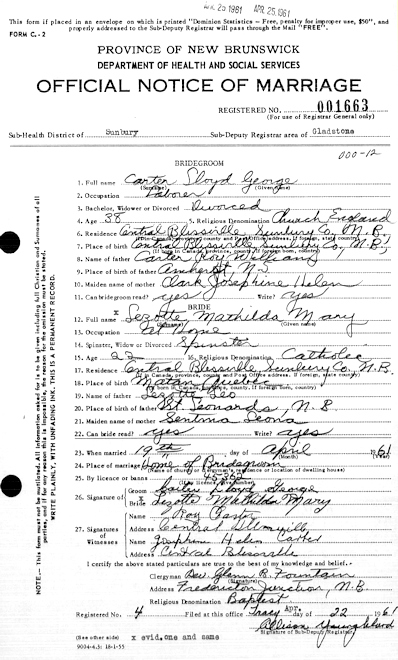 APR 25 1961 APR. 25, 1961
This form if placed in an envelope on which is printed "Dominion Statistics - Free, penalty for improper use, $50", and
properly addressed to the Sub-Deputy Registrar will pass through the Mail "FREE".
FORM C.-2
PROVINCE OF NEW BRUNSWICK
DEPARTMENT OF HEALTH AND SOCIAL SERVICES
OFFICIAL NOTICE OF MARRIAGE
REGISTERED NO. 001663
(For use of Registrar General only)
Sub-Health District of Sunbury Sub-Deputy Registrar area of Gladstone
000-12
BRIDEGROOM
1. Full name Carter Lloyd George
(Surname) (Given name)
2. Occupation Laborer
3. Bachelor, Widower or Divorced Divorced
4. Age 38 5. Religious Denomination Church England
6. Residence Central Blissville Sunbury Co., N.B.
7. Place of birth Central Blissville Sunbury Co., N.B.
8. Name of father Carter Roy William
9. Place of birth Amherst, N.S.
10. Maiden name of mother Clark Josephine Helen
11. Can bridegroom read? yes Write? yes
BRIDE
12. Full name x Lezotte Mathilda Mary
(Surname) (Given name)
13. Occupation At Home
14. Spinster, Widow or Divorced Spinster
15. Age 22 16. Religious Denomination Catholec
17. Residence Central Blissville Sunbury Co. N.B.
18. Place of birth Matan Quebec
19. Name of father Lezotte Leo
20. Place of birth St. Leonards, N.B.
21. Maiden name of mother Leona
22. Can bride read? yes Write? yes
23. When married 19th day of April 1961
(Month) (Year)
24. Place of marriage Home of Bridegroom
(Name of church or residence or location of dwelling house)
25. By licence or banns 45362
26. Signature of Groom Carter Lloyd George
x Bride Lezotte Mathilda Mary
27. Signature of Witnesses Roy Carter
Address Central Blissville
Josephine Helen Carter
Address Central Blissville
I certify the above stated particulars are true to the best of my knowledge and belief.
Clergyman Rev. Glenn R. Fountain
Address Fredericton Junction, N.B.
Religious Denomination Baptist
Registered No. 4 Filed at this office Tracy Apr. day of 22 1961
Allison Youngblard
Signature of Sub-Deputy Registrar
(See other side) x evid. one and same
9004-4.3: 18-1-55
NOTE.— This form must not be mutilated. All information asked for is to be given including full Christian and Surnames of all
parties, and if for any reason this is impossible, the reason for the omission must be stated.
WRITE PLAINLY, WITH UNFADING INK. THIS IS A PERMANENT RECORD.